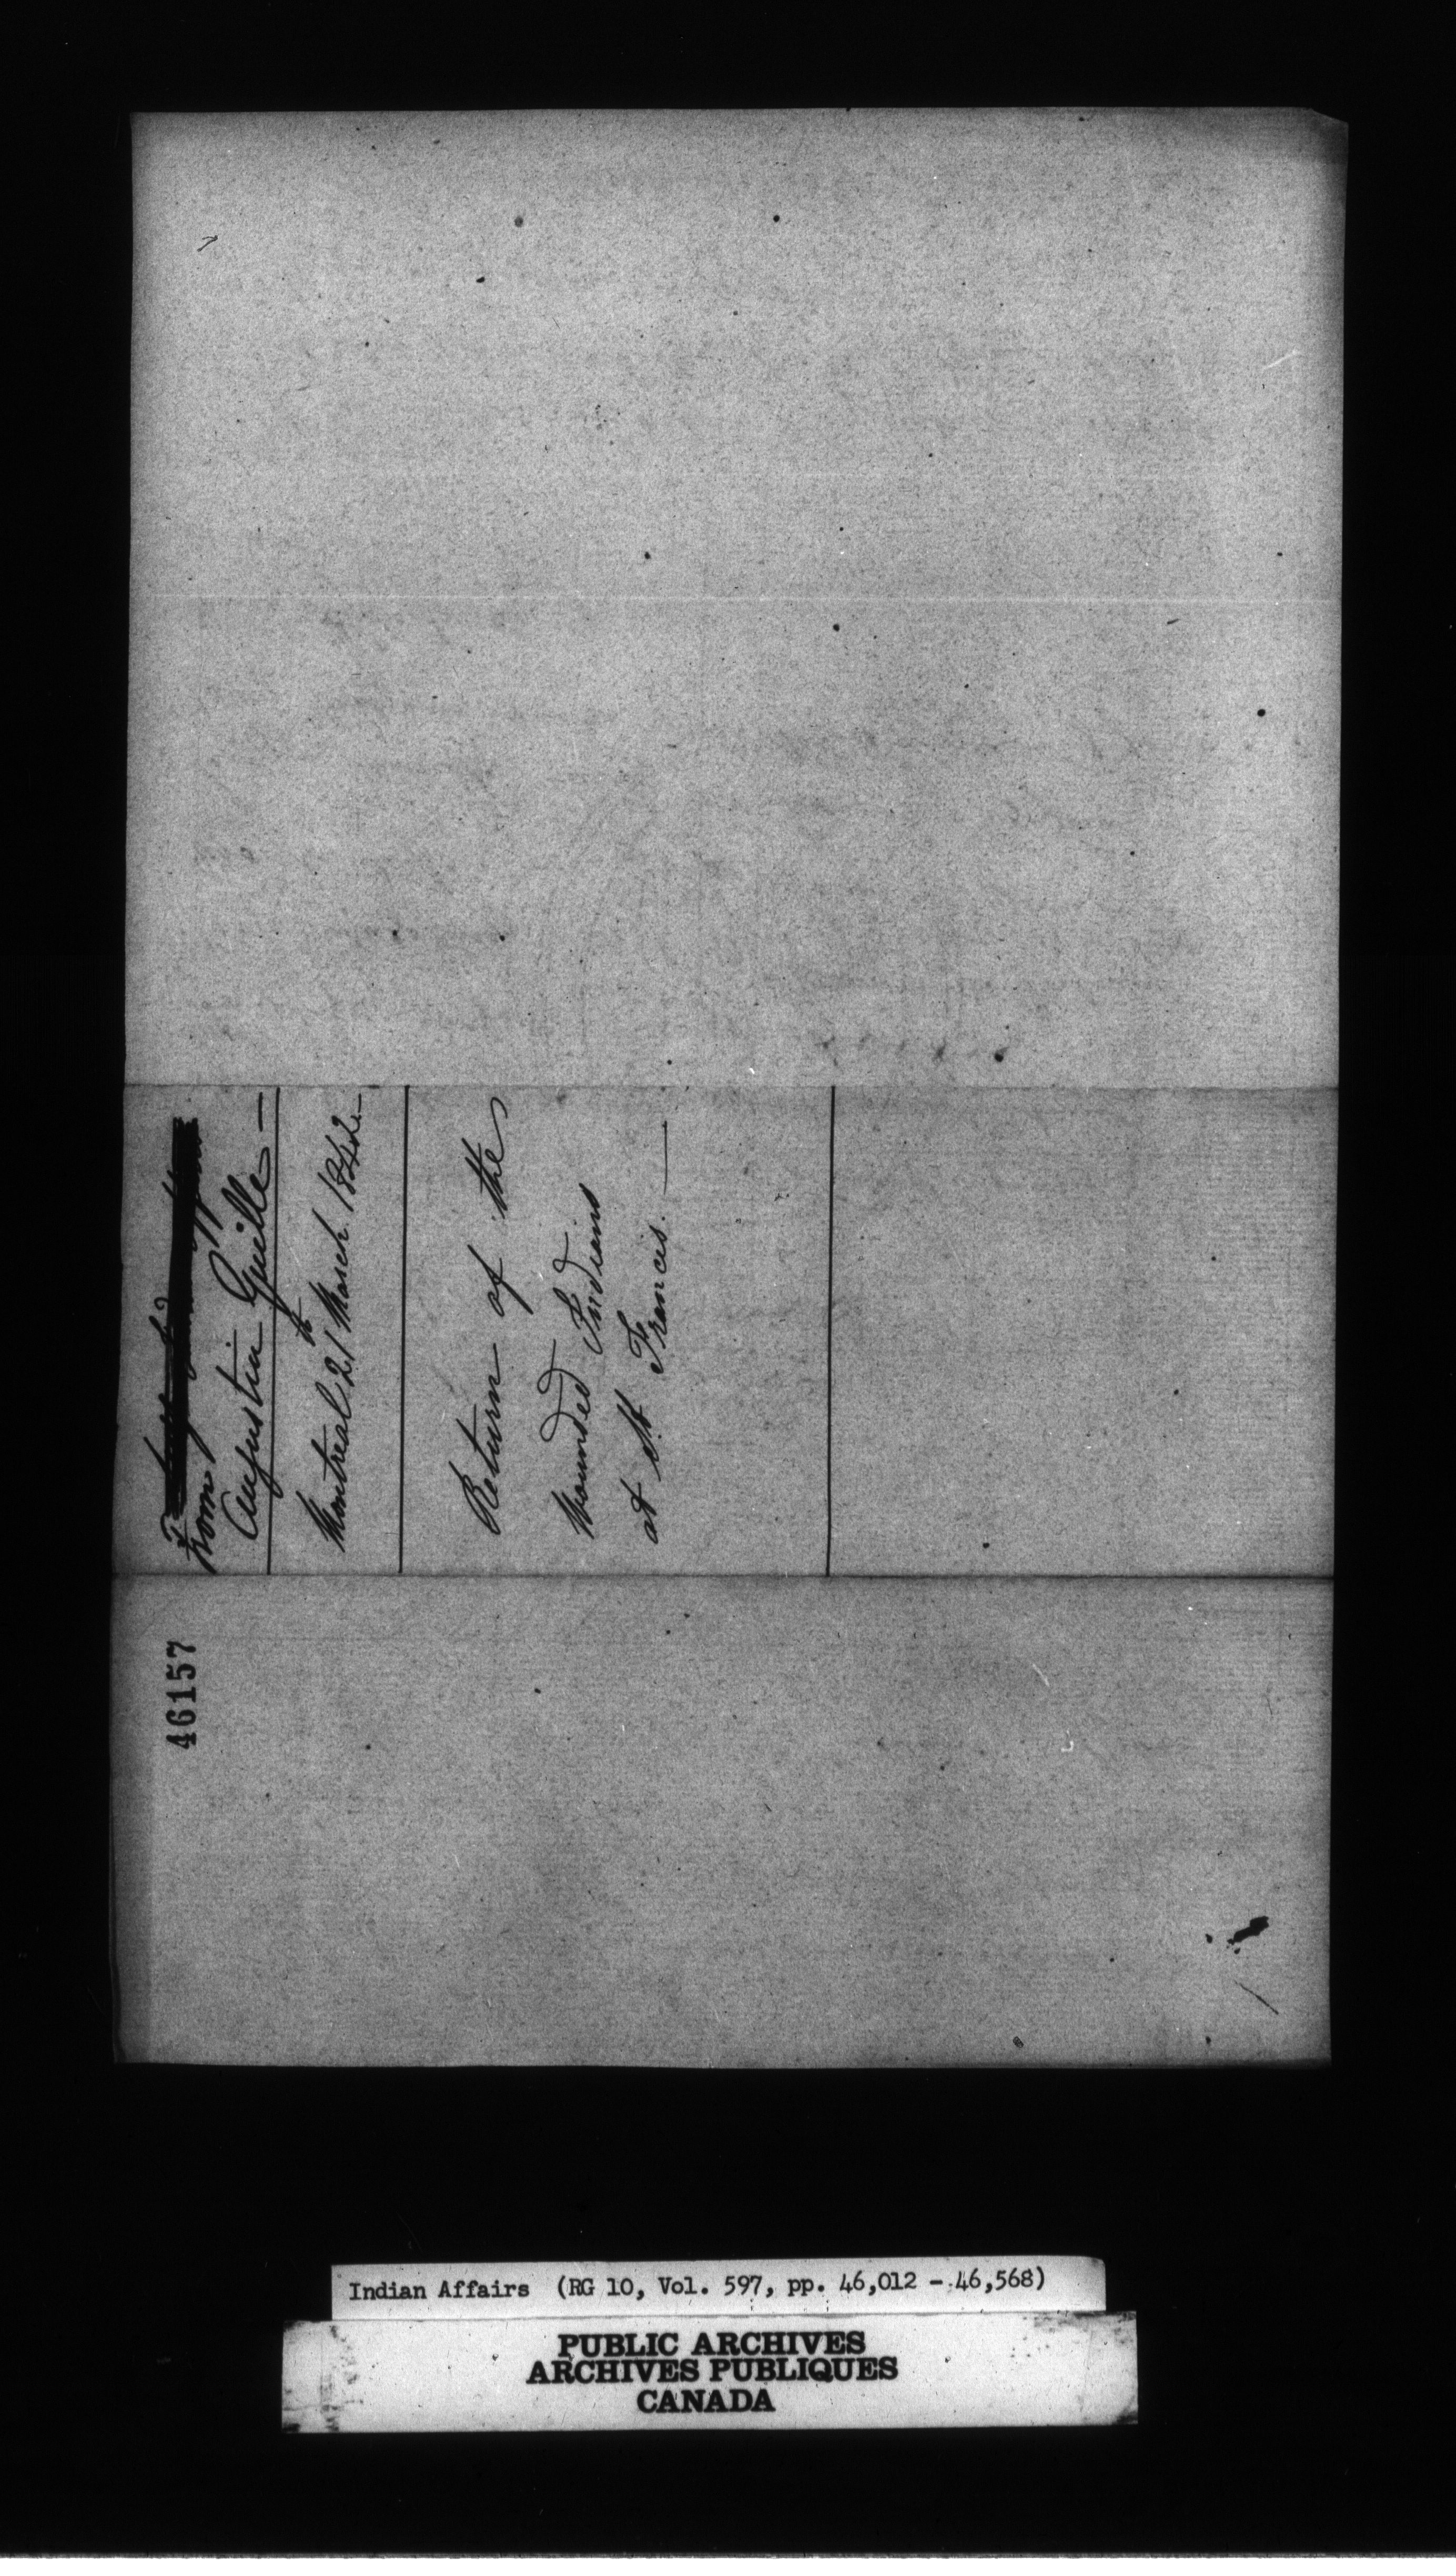 From
Augustin Guille —
Montreal 21th March 1842 —
Return of the
Wounded Indians
at St. Francis. —
46157
Indian Affairs (RG 10, Vol. 597, pp. 46,012 - 46,568)
PUBLIC ARCHIVES
ARCHIVES PUBLIQUES
CANADA